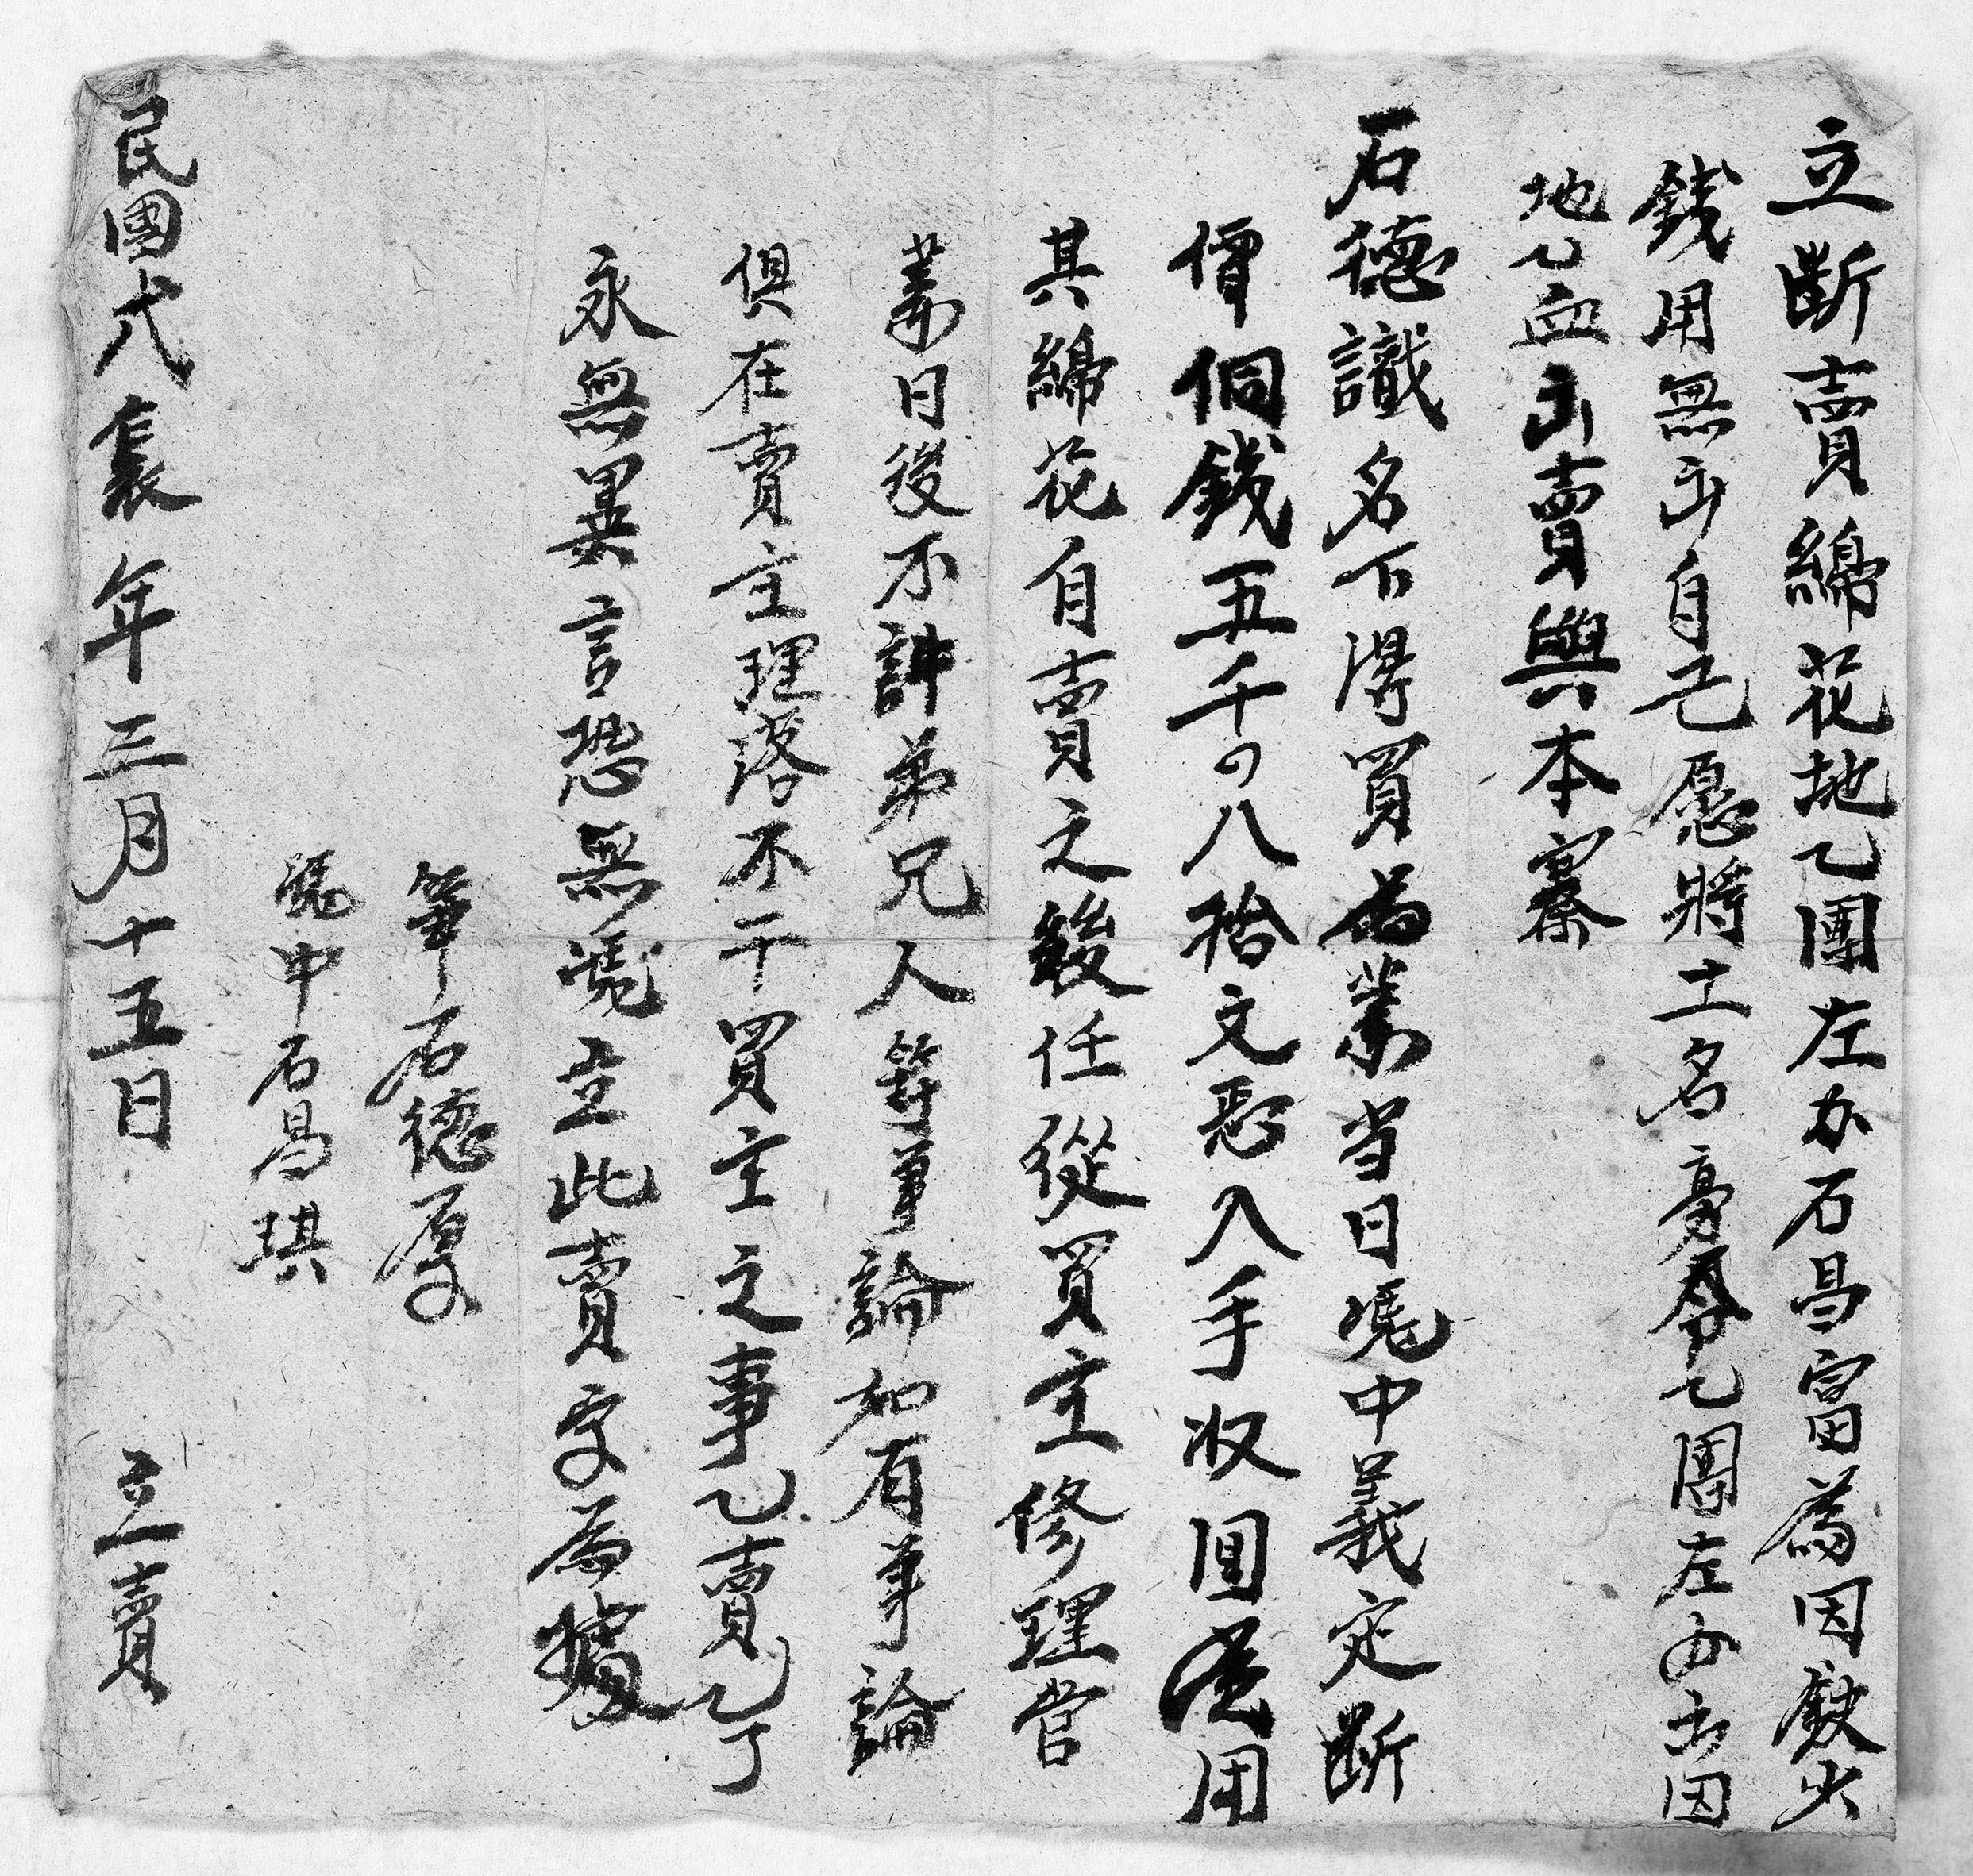 立斷賣綿花地乙團左办石昌富為因缺少
錢用無出自己愿將土名乙團左办出因
地乙血出賣與本寨
石德識名下得買為業当日憑中義定斷
價銅錢五千四八拾文悉入手收回應用
其綿花自賣之後任從買主修理管
業日後不許弟兄人等爭論如有爭論
俱在賣主理落不干買主之事乙賣乙了
永無異言恐無憑立此賣字為據
筆石德厚
憑中石昌琪
民國弍年三月十五日 立賣